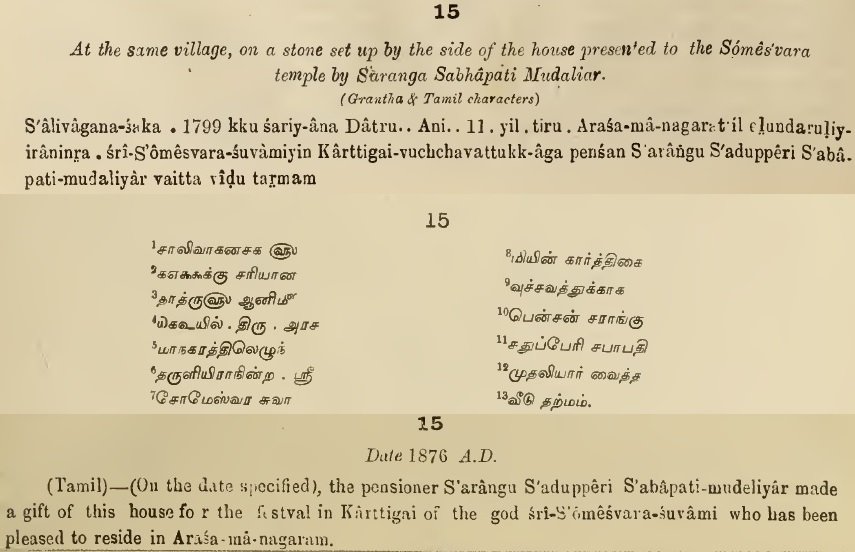 15
At the same village, on a stone set up by the side of the house presented to the Sómês'vara
temple by Saranga Sabhâpati Mudaliar.
(Grantha & Tamil characters)
S'âlivâgana-śaka . 1799 kku śariy-âna Dâtru.. Ani.. 11. yil. tiru. Araśa-mâ-nagarattil eḻundaruḷiy-
irâninṟa . śrî-S'ômêsvara-śuvâmiyin Kârttigai-vuchchavattukk-âga penśan S'arâṅgu S'aduppêri S'abâ-
pati-mudaliyâr vaitta vîḍu taṟmam
15
1சாலிவாகனசக
2க௭௯௯க்கு சரியான
3தாத்ரு ஆனி
4 யில் . திரு . அரச
5மாநகரத்திலெழுந்
6தருளியிராநின்ற . ஸ்ரீ
7சோமேஸ்வர சுவா
8மியின் கார்த்திகை
9வுச்சவத்துக்காக
10பென்சன் சராங்கு
11சதுப்பேரி சபாபதி
12முதலியார் வைத்த
13வீடு தற்மம்.
15
Date 1876 A.D.
(Tamil)—(On the date specified), the pensioner S'arângu S'aduppêri S'abâpati-mudeliyâr made
a gift of this house for the festval in Kârttigai of the god śrî-S'ômêśvara-śuvâmi who has been
pleased to reside in Araśa-mâ-nagaram.